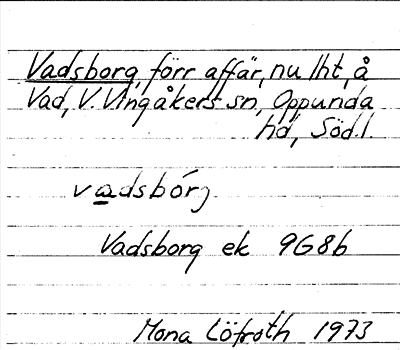 Vadsborg, förr affär, nu lht, å
Vad, V. Vingåkers sn, Oppunda
hd, Söd.l.
vadsbórj
Vadsborg ek 9G8b
Mona Löfroth 1973